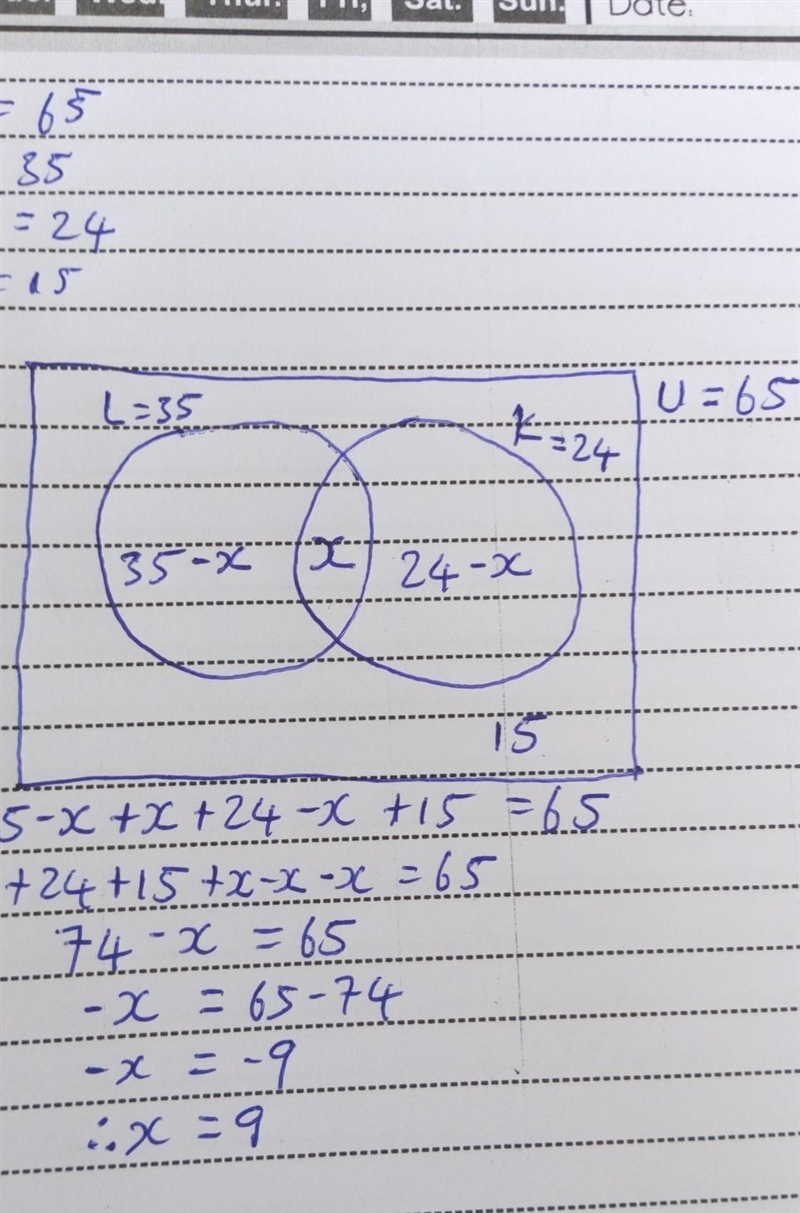 Wed. Thur. Fri, Sat. Sun. Date:
= 65
35
= 24
= 15
L = 35
K = 24
U = 65
35 - x
x
24 - x
15
5 - x + x + 24 - x + 15 = 65
+ 24 + 15 + x - x - x = 65
74 - x = 65
- x = 65 - 74
- x = - 9
∴ x = 9